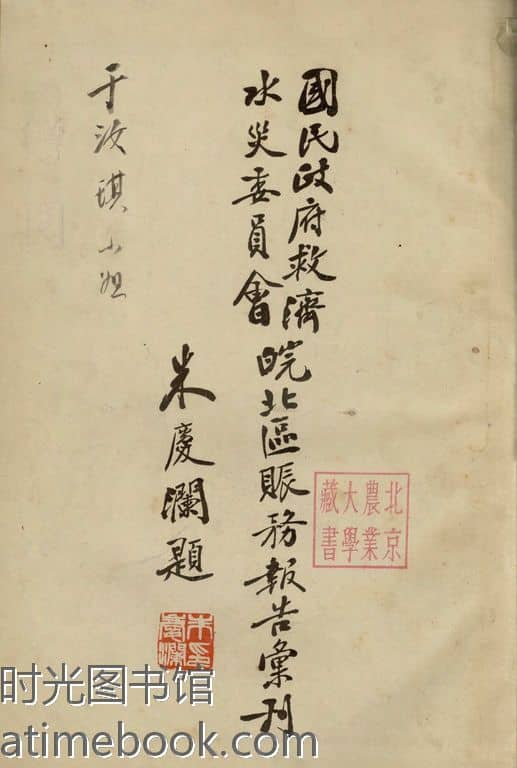 國民政府救濟
水災委員會
皖北區賑務報告彙刊
朱慶瀾題
朱慶瀾
于汝琪小姐
北京
農業
大學
藏書
时光图书馆
atimebook.com